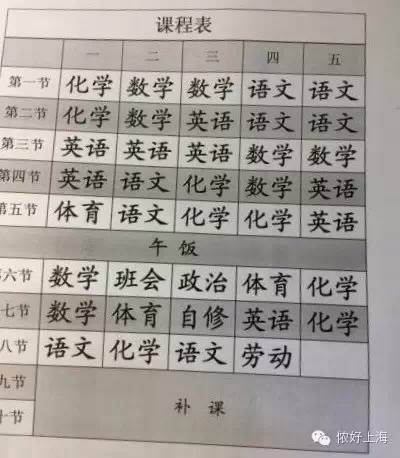 课程表
一 二 三 四 五
第一节 化学 数学 数学 语文 语文
第二节 化学 数学 英语 语文 语文
第三节 英语 英语 英语 数学 数学
第四节 英语 语文 化学 数学 英语
第五节 体育 语文 化学 化学 英语
午饭
六节 数学 班会 政治 体育 化学
七节 数学 体育 自修 英语 化学
八节 语文 化学 语文 劳动
九节
补课
十节
侬好上海